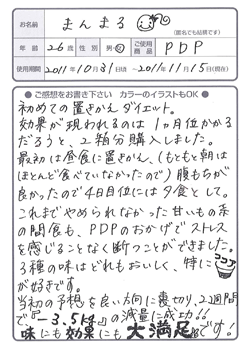 お名前 まんまる
(匿名でも結構です)
年齢 26歳 性別 男・女 ご使用商品 PDP
使用期間 2011年10月31日頃 ～ 2011年11月15日(現在)
●ご感想をお書き下さい カラーのイラストもOK●
初めての置きかえダイエット。
効果が現われるのは1ヵ月位かかる
だろうと、2箱分購入しました。
最初は昼食に置きかえ、(もともと朝は
ほとんど食べていなかったので)腹もちが
良かったので4日目位には夕食として。
これまでやめられなかった甘いもの系
の間食も、PDPのおかげでストレス
を感じることなく断つことができました。
3種の味はどれもおいしく、特に
が好きです。
当初の予想を良い方向に裏切り、2週間
で『-3.5kg』の減量に成功!!
味にも効果にも大満足です!